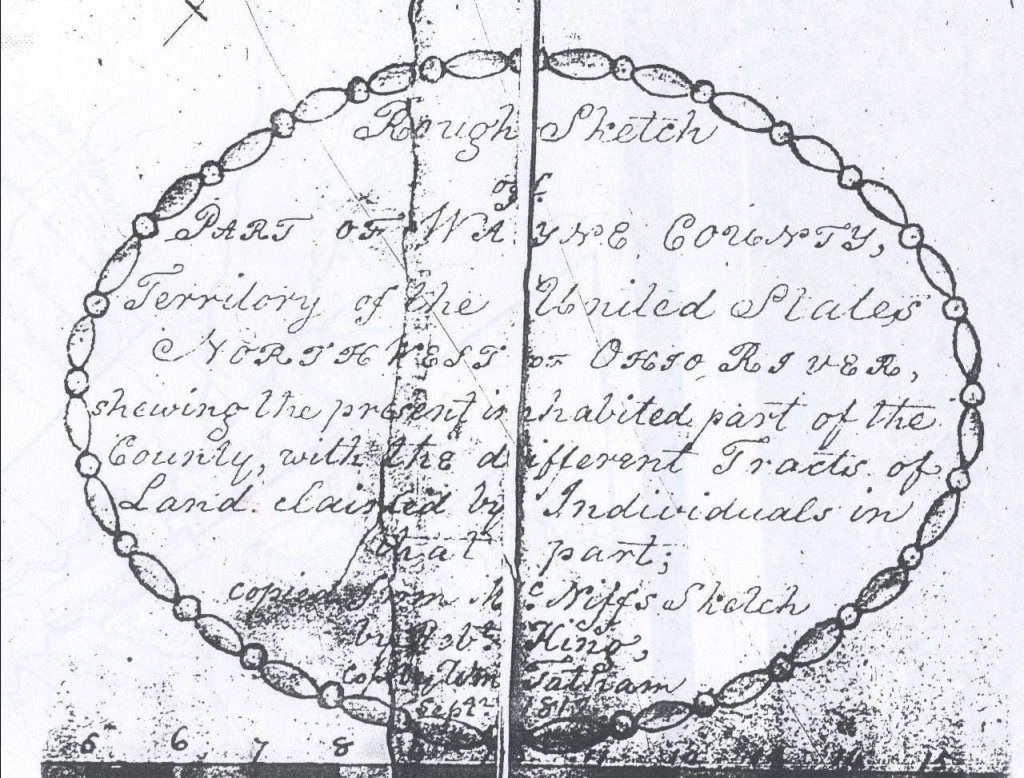 Rough Sketch
of
PART OF WAYNE COUNTY,
Territory of the United States
NORTHWEST OF OHIO RIVER,
shewing the present inhabited part of the
County, with the different Tracts of
Land claimed by Individuals in
that part;
copied from McNiff's Sketch
by Robt. King,
Cop. by Wm Tatham
Septr. 181
5 6 7 8 11 12 13 14 15